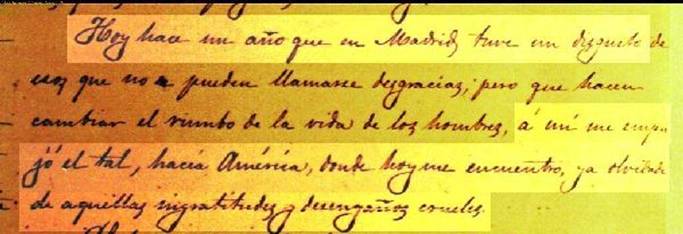 Hoy hace un año que en Madrid, tuve un disgusto de
esos que no pueden llamarse desgracias, pero que hacen
cambiar el rumbo de la vida de los hombres, á mí me empu-
jó el tal, hacia América, donde hoy me encuentro, ya olvidado
de aquellas ingratitudes y desengaños crueles.